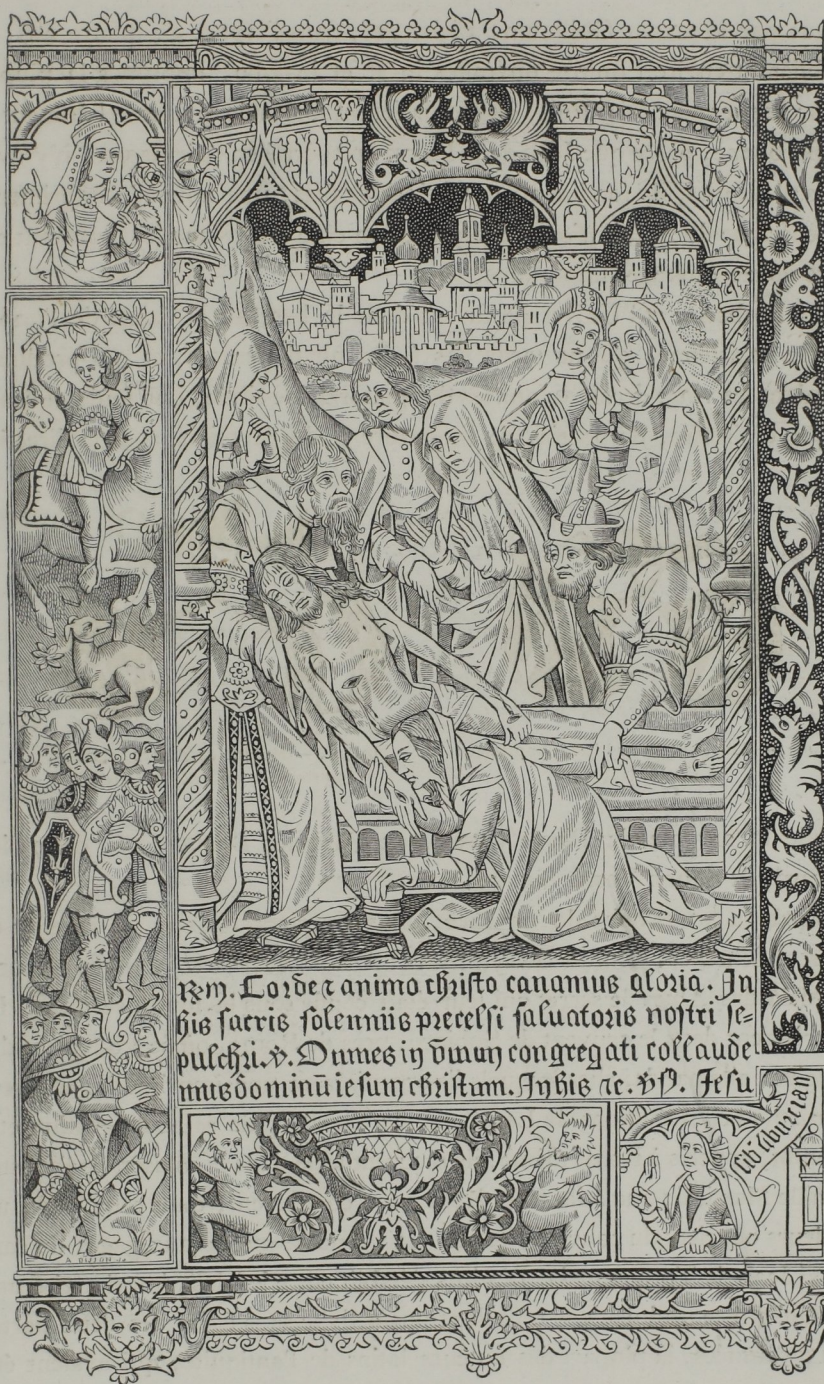 Corde ⁊ animo christo canamus gloriā. In
his sacris solenniis precelsi saluatoris nostri se=
pulchri. ℣. Omnes in vnum congregati collaude
mus dominū iesum christum. In his ⁊c. Jesu